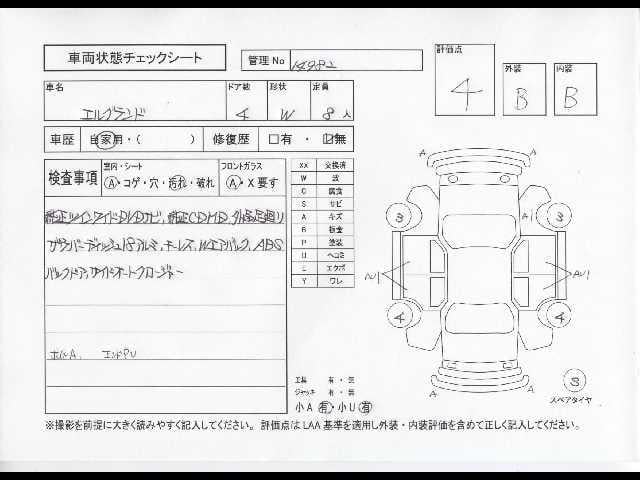 車両状態チェックシート
管理No 14982
評価点
4
外装
B
内装
B
車名
エルグランド
ドア数
4
形状
W
定員
8人
車歴 自家用・( ) 修復歴 □有・☑無
検査事項
室内・シート
Ⓐ・コゲ・穴・汚れ・破れ
フロントガラス
Ⓐ・X要す
純正ツインワイドDVDナビ、純正CDMD、外品足廻り
ガラスパーティション18アルミ、キーレス、Wエアバック、ABS
バックドア、サイドオートクロージャー
ホイルA、 エンドPU
XX 交換済
W 波
C 腐食
S サビ
A キズ
B 板金
P 塗装
U ヘコミ
E エクボ
Y ワレ
工具 有・無
ジャッキ 有・無
小A 有・小U 有
A
A
3
3
AU1
AU1
4
4
A
A
3
スペアタイヤ
※撮影を前提に大きく読みやすく記入してください。 評価点はLAA基準を適用し外装・内装評価を含めて正しく記入してください。